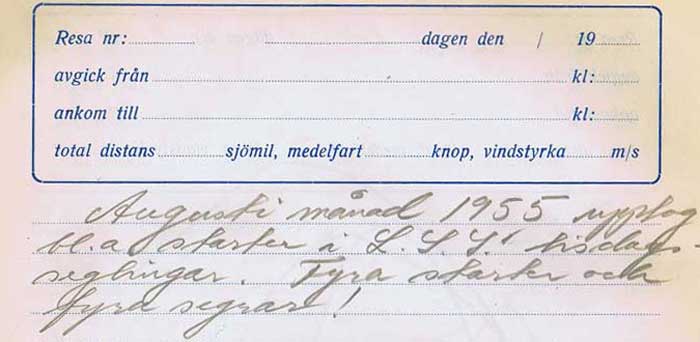 Resa nr: dagen den / 19
avgick från kl:
ankom till kl:
total distans sjömil, medelfart knop, vindstyrka m/s
Augusti månad 1955 upptog
bl.a starter i L.S.S.' tisdags-
seglingar. Fyra starter och
fyra segrar!